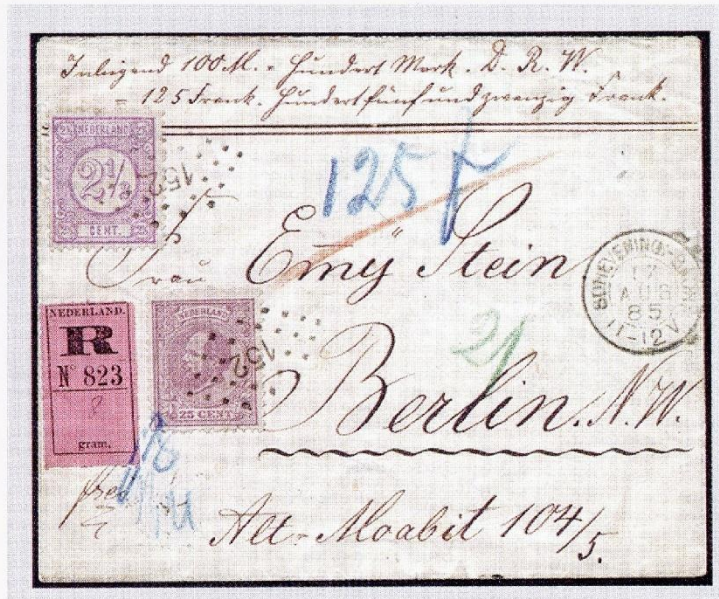 Inliegend 100 M. - Hundert Mark. D. R. W.
= 125 Frank. Hundertfünfundzwanzig Frank.
125 f
NEDERLAND
2½
CENT.
152
Frau
Emÿ Stein
17
AUG
85
11-12V
NEDERLAND.
R
Nº 823
8
gram.
NEDERLAND
25 CENT
152
21
Berlin. N.W.
Alt-Moabit 104/5.